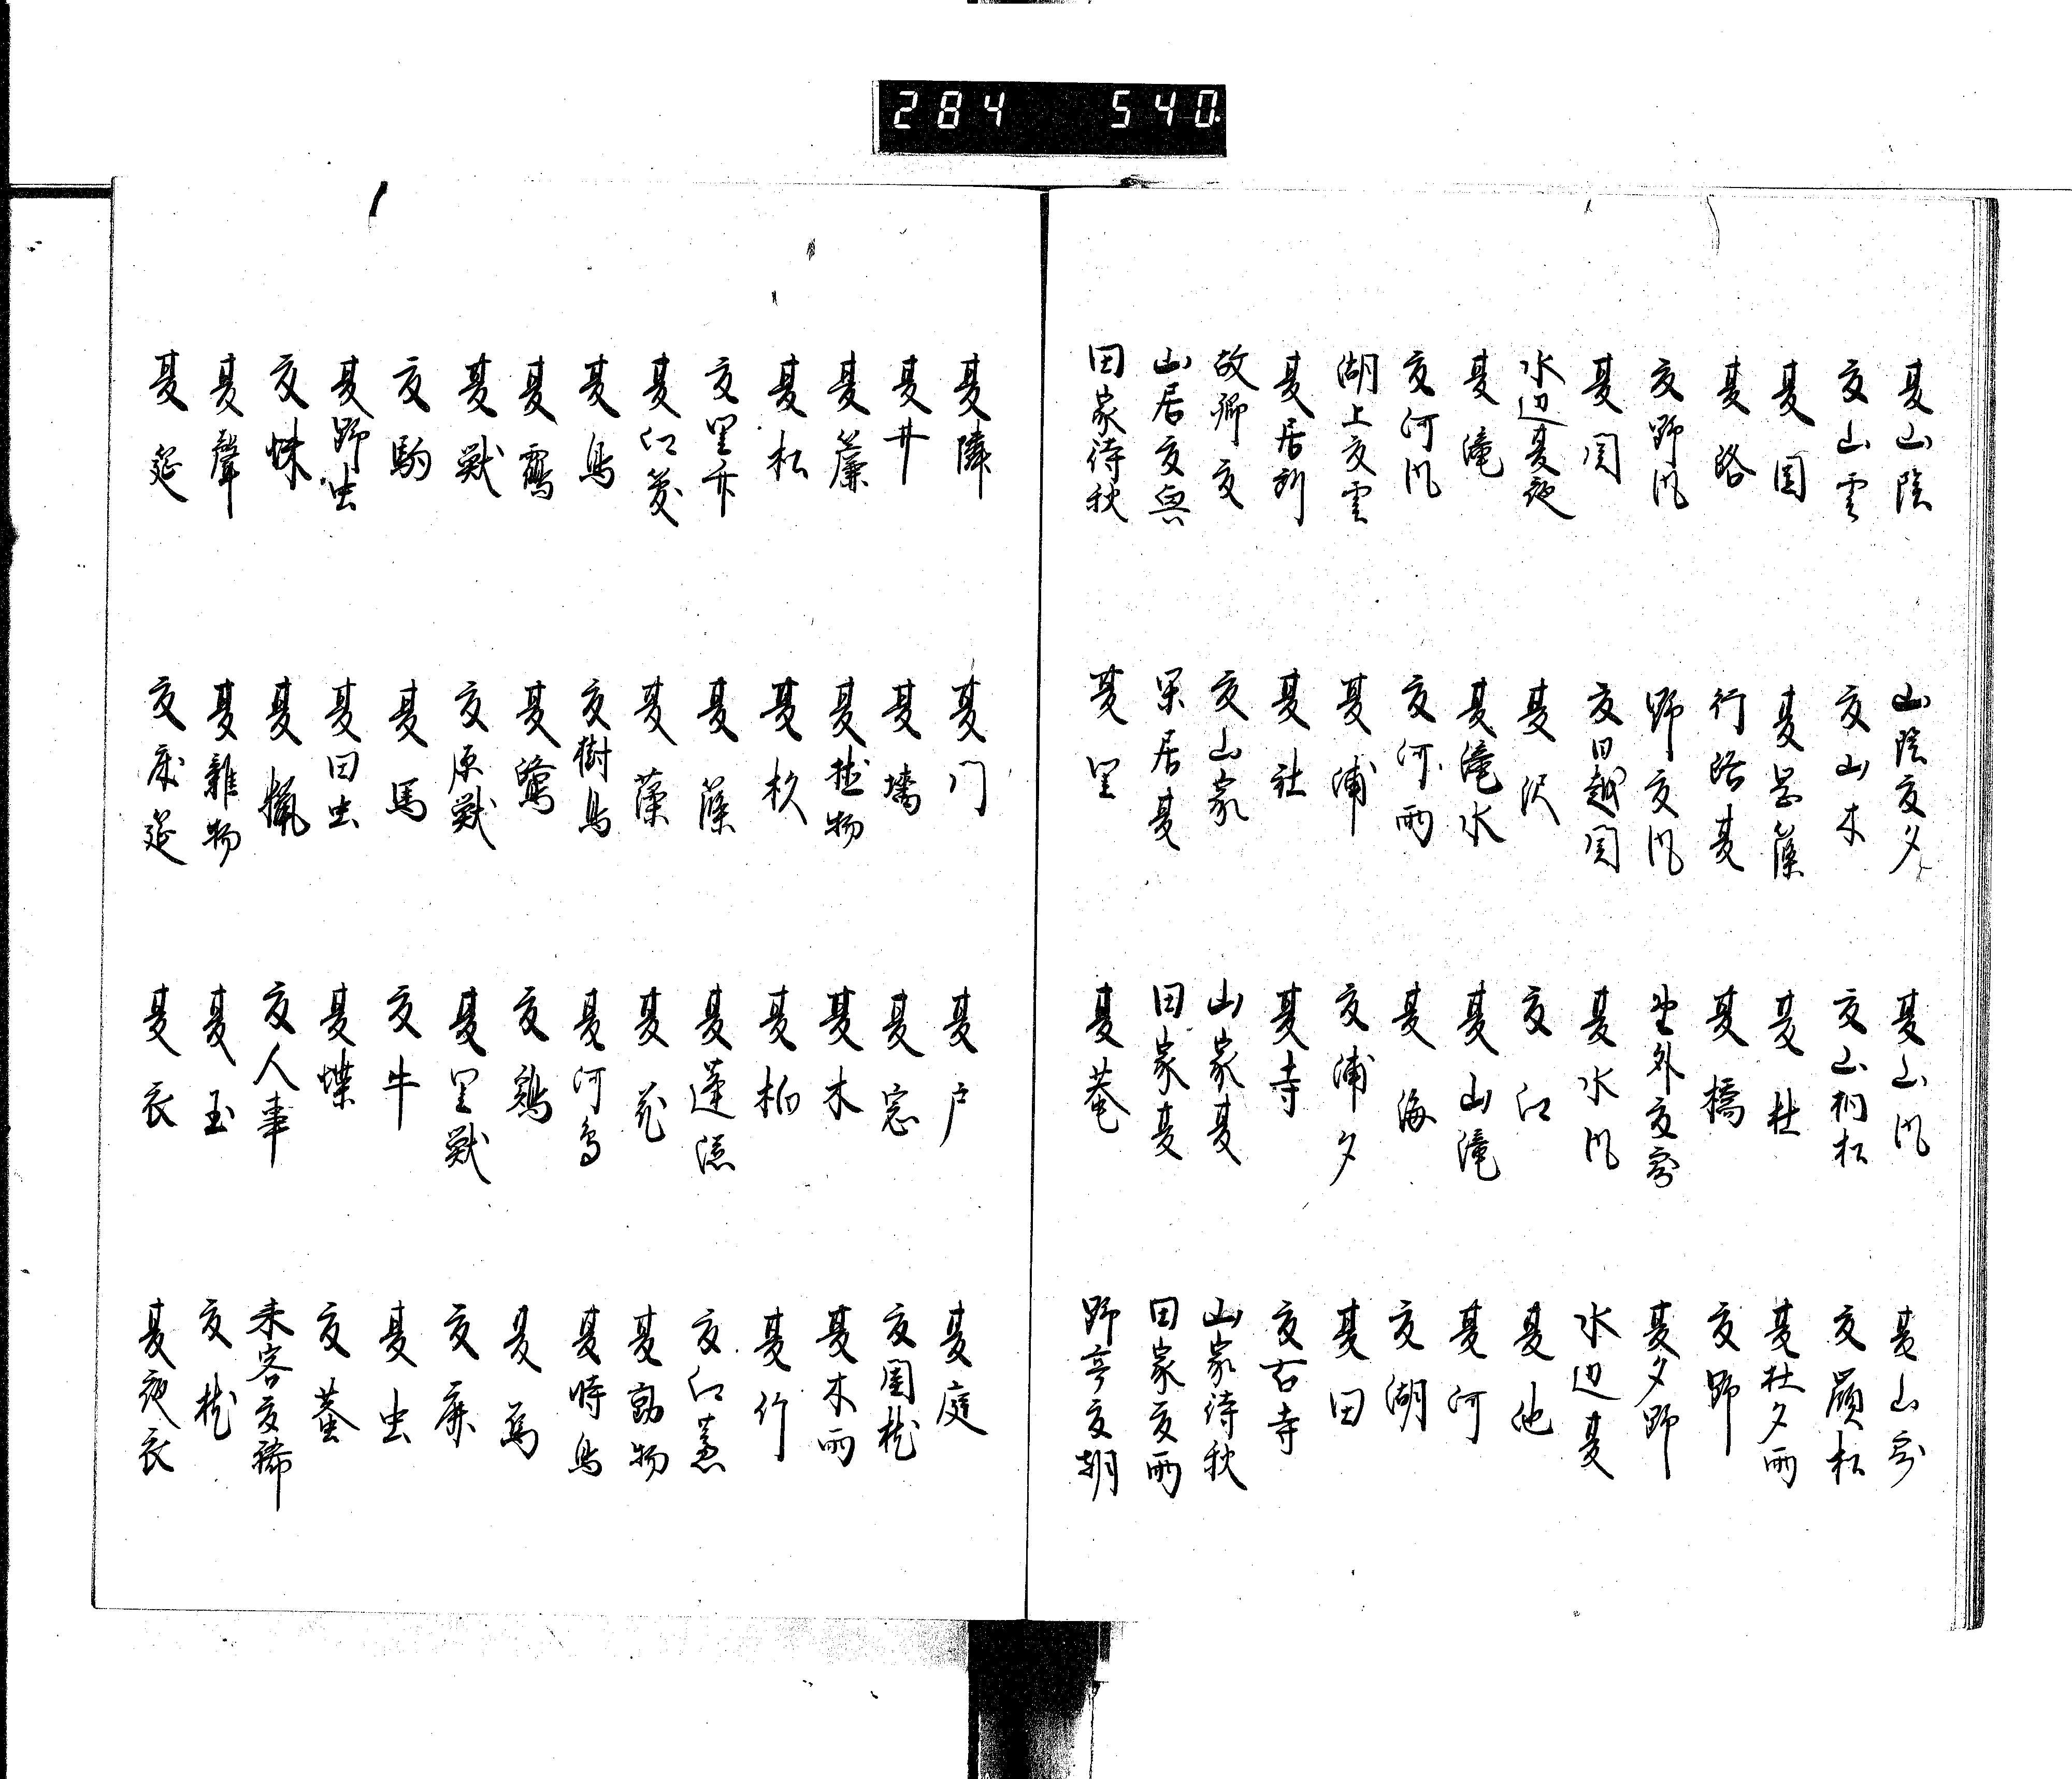 284 540
夏山陰 山陰夏夕 夏山风 夏山家
夏山雲 夏山木 夏山榈松 夏嶺松
夏関 夏岡篠 夏杜 夏杜夕雨
夏路 行路夏 夏橋 夏野
夏野风 野夏风 野外夏家 夏夕野
夏関 夏日越関 夏水风 水辺夏
水辺夏夜 夏沢 夏江 夏池
夏滝 夏滝水 夏山滝 夏河
夏河风 夏河雨 夏海 夏湖
湖上夏雲 夏浦 夏浦夕 夏田
夏居所 夏社 夏寺 夏古寺
故郷夏 夏山家 山家夏 山家待秋
山居夏興 閑居夏 田家夏 田家夏雨
田家待秋 夏里 夏菴 野亭夏朝
夏隣 夏门 夏戸 夏庭
夏井 夏墻 夏窓 夏園
夏簾 夏植物 夏木 夏木雨
夏松 夏杉 夏柏 夏竹
夏里竹 夏篠 夏蓬 夏江
夏江 夏藻 夏花 夏動物
夏鳥 夏樹鳥 夏河鳥 夏時鳥
夏鷺 夏鶏 夏
夏獣 夏原獣 夏里獣 夏鹿
夏駒 夏馬 夏牛 夏虫
夏野虫 夏田虫 夏蝶 夏
夏蛛 夏猟 夏人事 来客夏稀
夏聲 夏雑物 夏玉 夏枕
夏莚 夏床莚 夏衣 夏夜衣